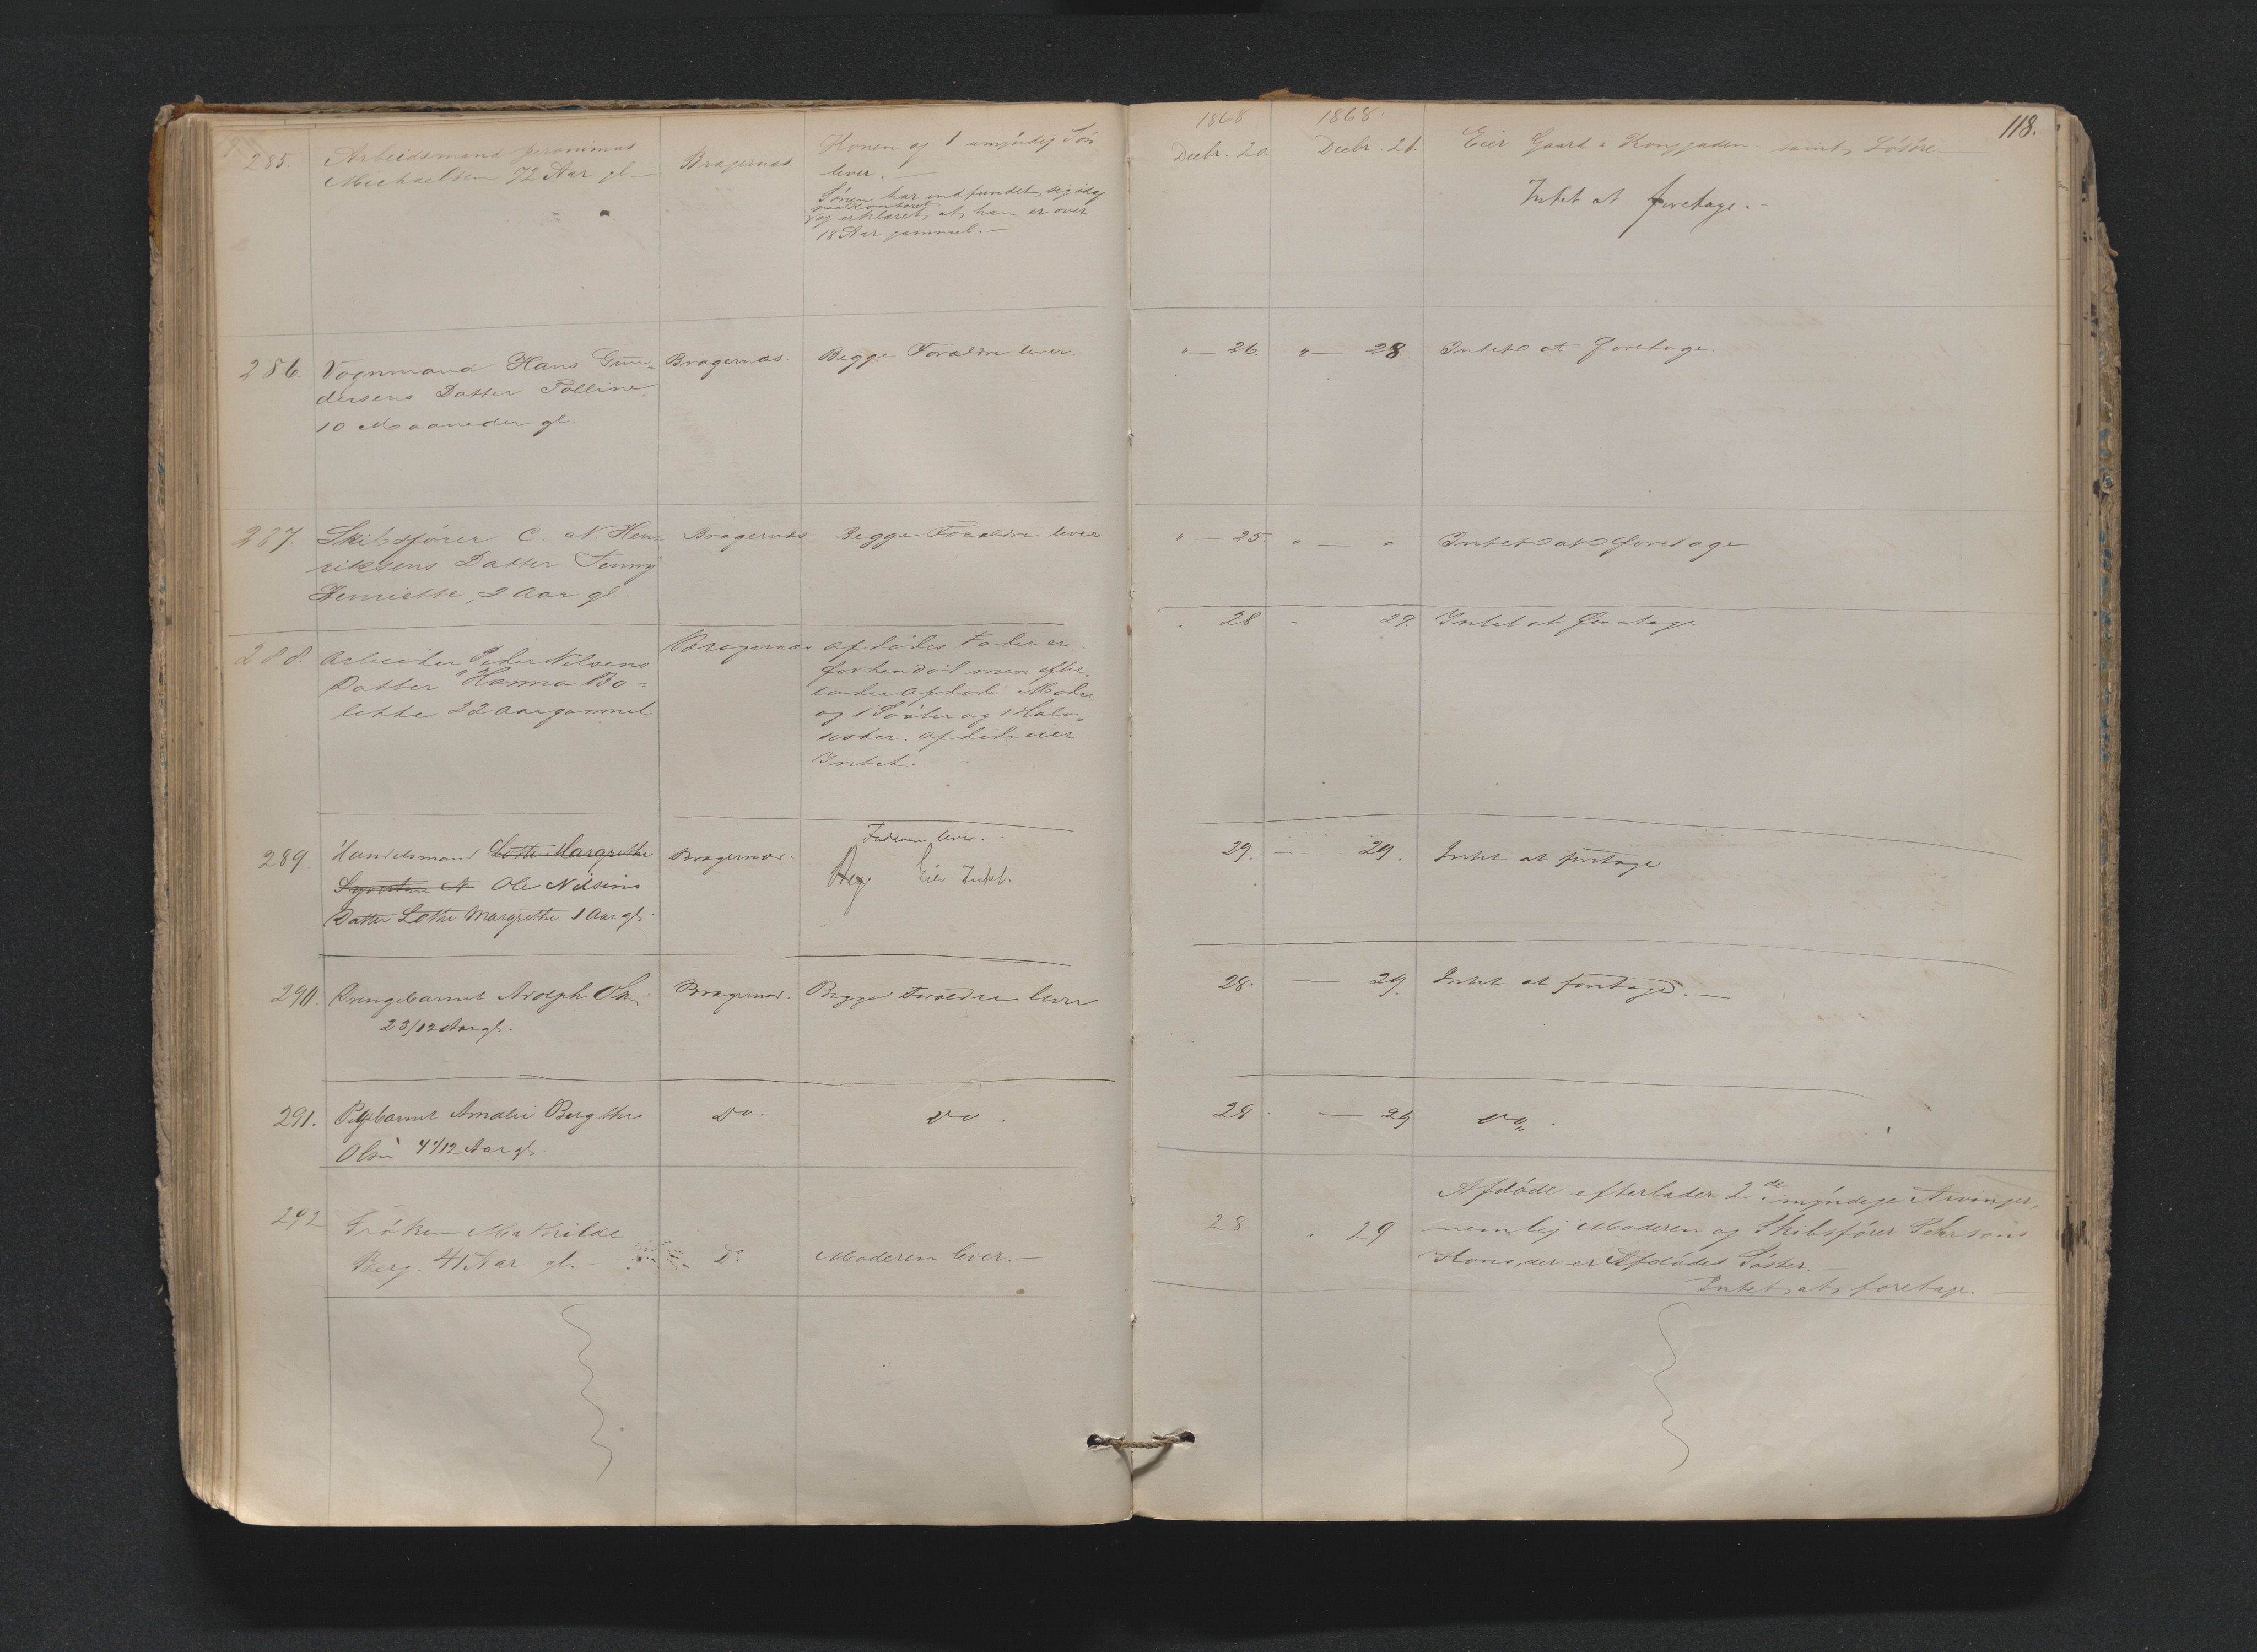 118.
1868 1868.
285. Arbeidsmand Jeronimus Bragernæs Konen og 1 umyndig Søn Decbr. 20. Decbr. 21. Eier Gaard i Konggaden samt Løsøre
Michaelsen 72 Aar gl. lever.
Sønen har indfundet sig idag Intet at foretage.
paa Kontoret
og erklæret, at han er over
18 Aar gammel.
286. Vognmand Hans Gun- Bragernæs. Begge Forældre lever. " — 26. " — 28. Intet at foretage.
dersens Datter Polline
10 Maaneder gl.
287 Skibsfører C. N. Hen- Bragernæs Begge Forældre lever " — 25. " — " Intet at foretage
riksens Datter Jenny
Henriette, 2 Aar gl.
288. Arbeider Peder Nilsens Bragernæs Afdødes Fader er 28 29. Intet at foretage
Datter Hanna Bo- forhen död men efter-
lette 22 Aar gammel lader Afdöde Moder
og 1 Søster og 1 Halv-
søster. Afdöde eier
Intet.
289. Handelsmand Lothe Margrethe Bragernæs. Faderen lever. 29. 29. Intet at foretage
Ole Nilsens Beg Eier Intet.
Datter Lothe Margrethe 1 Aar gl.
290. Drengebarnet Adolph Bragernæs. Begge Forældre lever 28. — 29. Intet at foretage. —
23/12 Aar gl.
291. Pigebarnet Amalie Bergithe Do. Do. 28 — 29 Do.
Olsen 4 1/12 Aar gl.
292 Frøken Mathilde Do. Moderen lever. — 28. 29 Afdøde efterlader 2de myndige Arvinger,
Berg. 41 Aar gl. nemlig Moderen og Skibsfører Pehrsons
Kone, der er Afdødes Søster.
Intet at foretage.